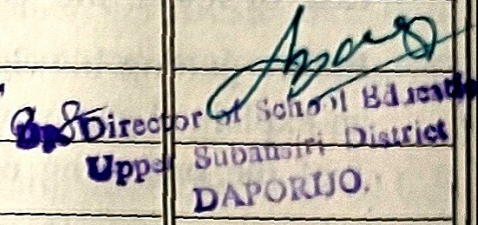 Director of School Education
Upper Subansiri District
DAPORIJO.